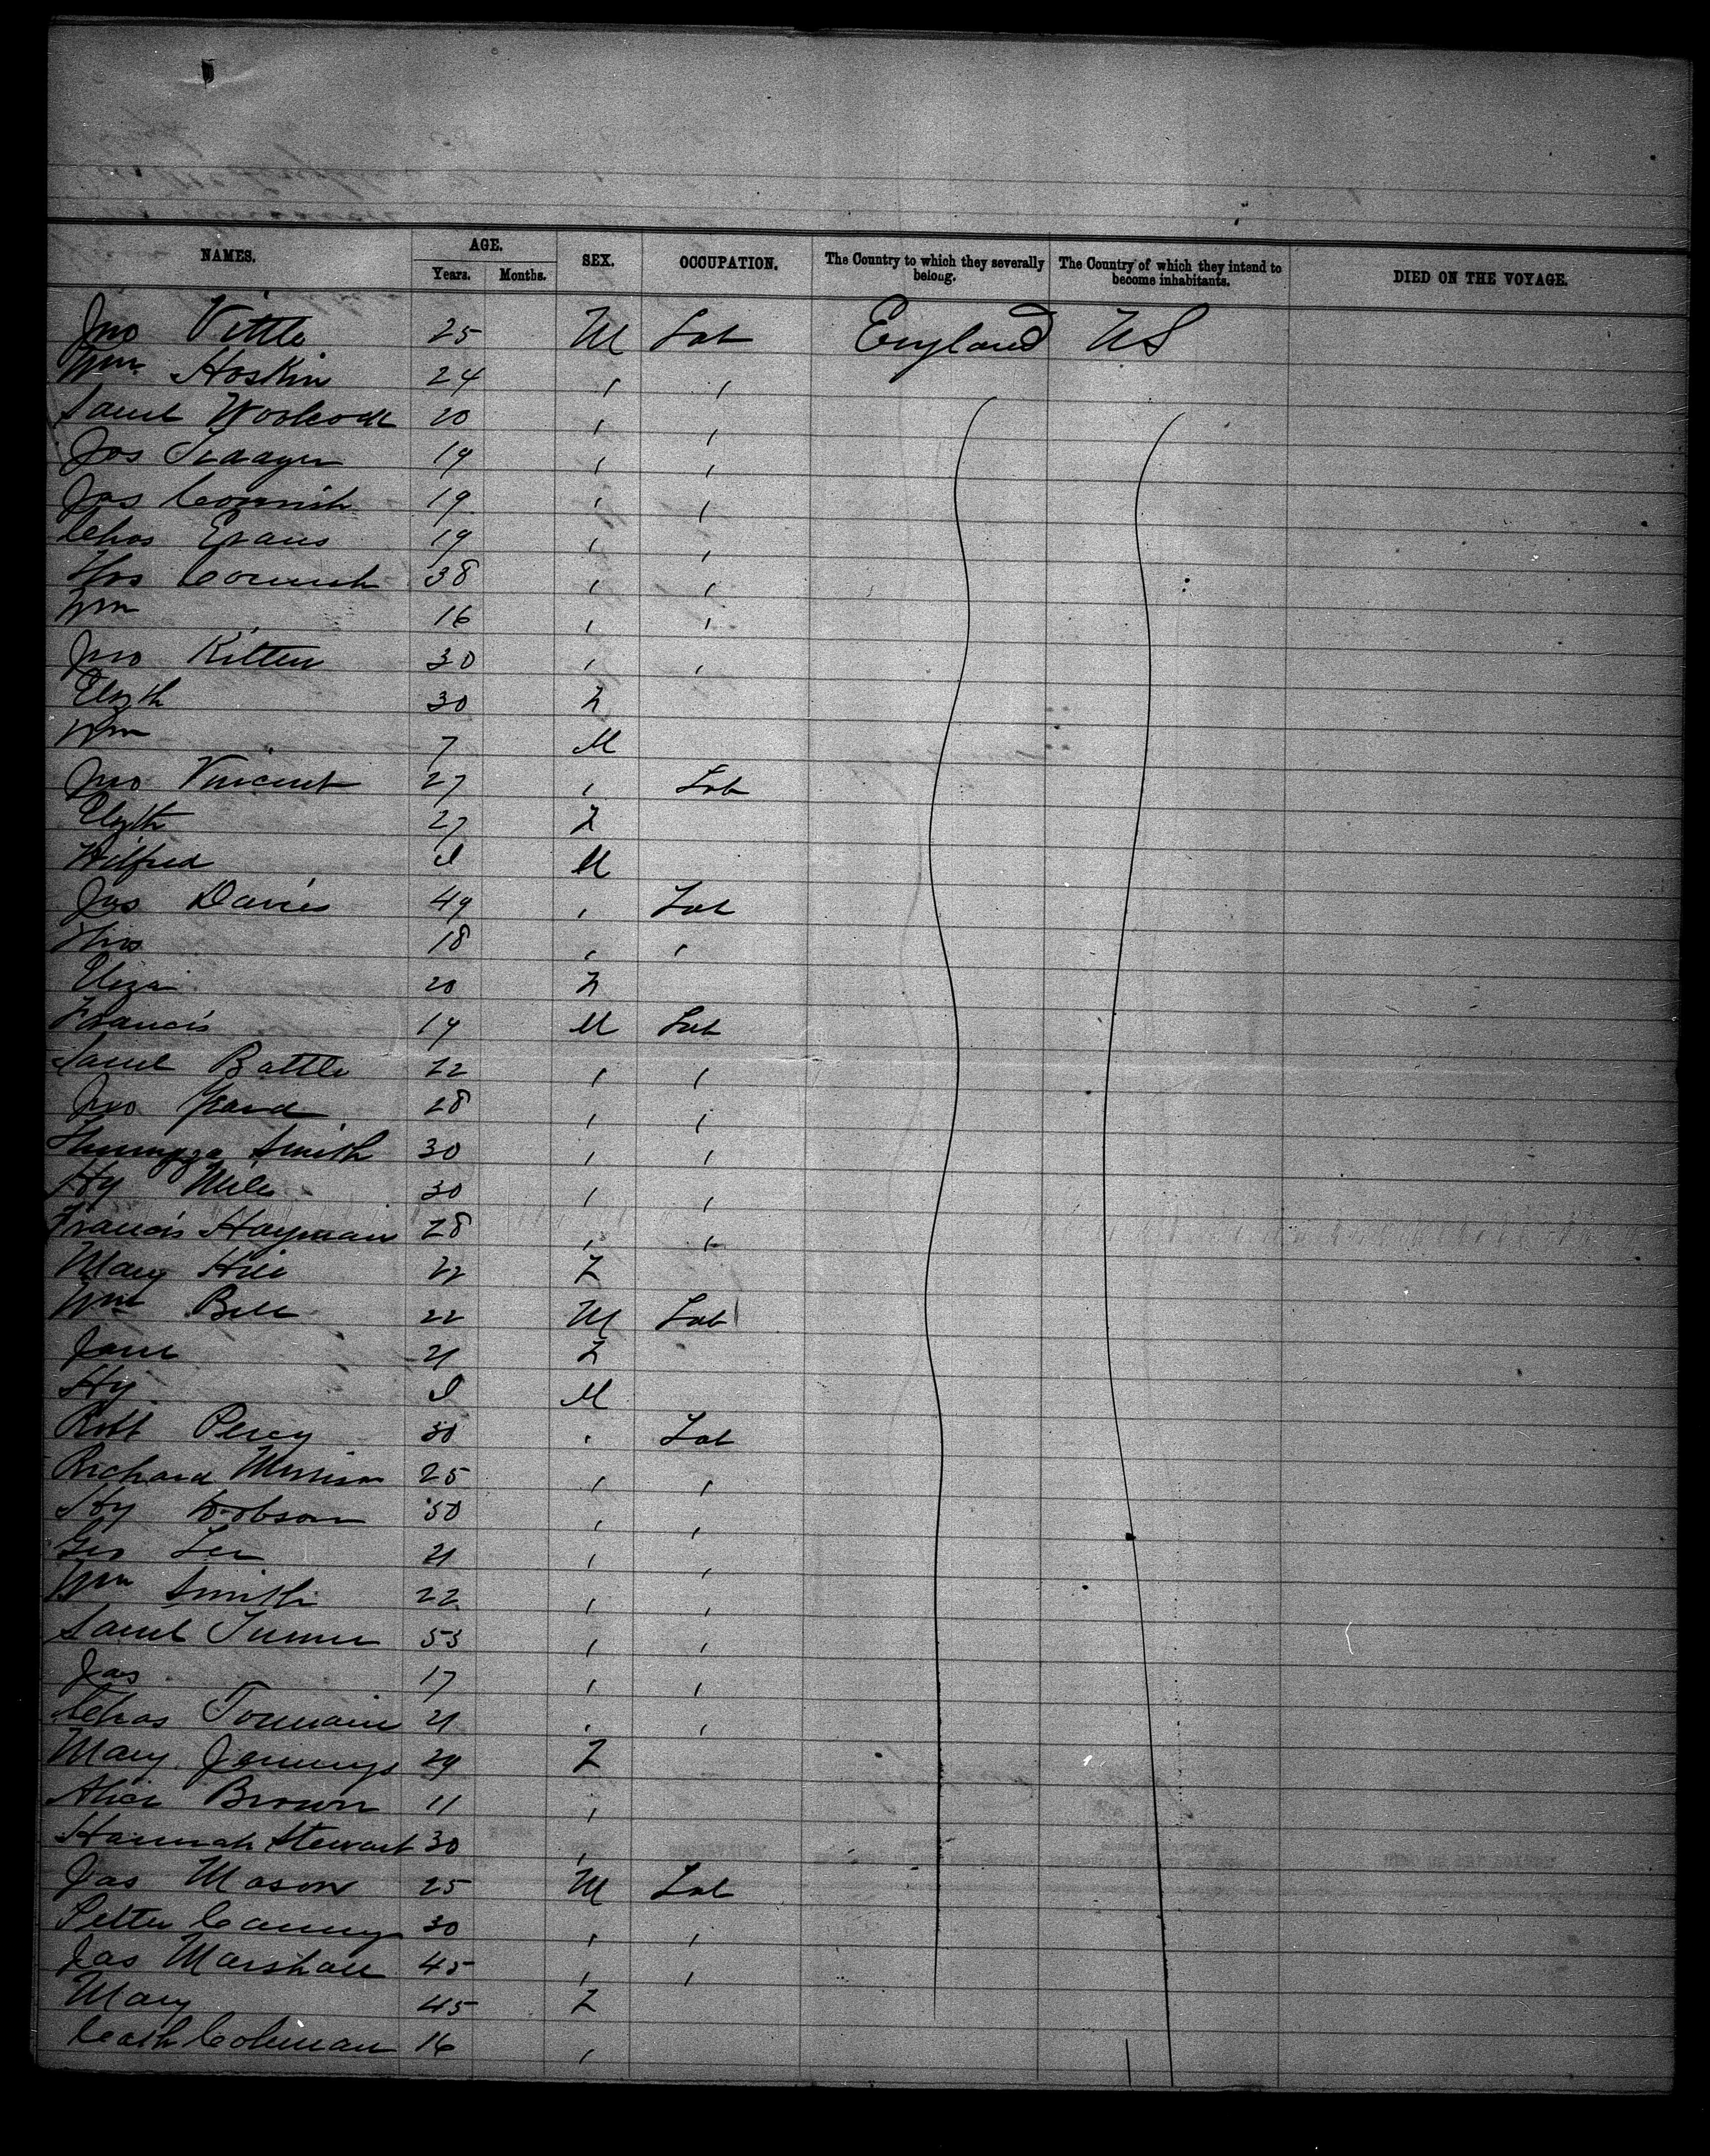 NAMES. AGE. SEX. OCCUPATION. The Country to which they severally belong. The Country of which they intend to become inhabitants. DIED ON THE VOYAGE.
Years. Months.
Jno Vittle 25 M Lab England US
Wm Hoskin 24 , ,
Saml Woolcock 20 , ,
Jos 19 , ,
Jas Cornish 19 , ,
Chas Evans 19 , ,
Thos Cornish 38 , ,
Wm 16 , ,
Jno Kitten 30 , ,
Elizth 30 F
Wm 7 M
Jno Vincent 27 , Lab
Elizth 27 F
Wilfred I M
Jas Davies 49 , Lab
Thos 18 , ,
Eliza 20 F
Francis 19 M Lab
Saml Battle 22 , ,
Jno Yeard 28 , ,
Smith 30 , ,
Hy Miles 30 , ,
Francis Hayman 28 , ,
Mary Hill 22 F
Wm Bell 22 M Lab
Jane 21 F
Hy I M
Robt Percy 30 , Lab
Richard 25 , ,
Hy Dobson 50 , ,
Geo Lee 21 , ,
Wm Smith 22 , ,
Saml Turner 53 , ,
Jas 17 , ,
Chas 21 , ,
Mary Jennings 29 F
Alice Brown 11 ,
Hannah Stewart 30 ,
Jas Mason 25 M Lab
Petter 30 , ,
Jas Marshall 45 , ,
Mary 45 F
Cath Coleman 16 ,